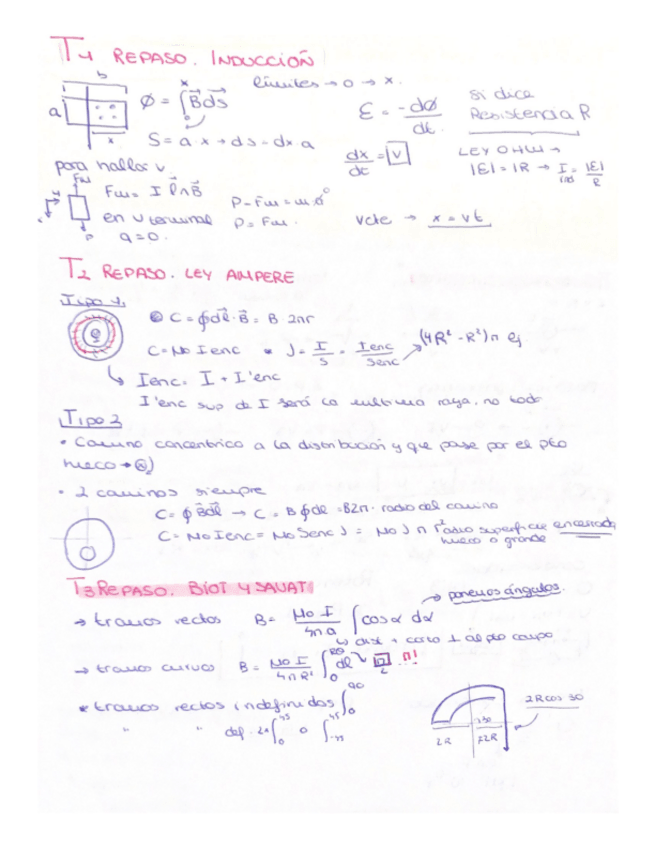 T1 REPASO. INDUCCIÓN
b
a
x
φ = ∫B⃗ds⃗
x
0
límites → 0 → x.
S = a·x → ds = dx·a
ε = -dφ/dt.
dx/dt = V
si dice
Resistencia R
LEY OHM →
|ε| = IR → I ind = |ε|/R
para hallar v
Fm
Fm = I l⃗∧B⃗
P - Fm = m·a⃗ 0
en v terminal P = Fm.
a = 0.
P
vcte → x = vt
T2 REPASO. LEY AMPERE
Tipo 1.
C = ∮dl⃗·B⃗ = B·2πr
C = μ0 Ienc * J = I/S = Ienc/Senc → (4R² - R²)π ej
↳ Ienc = I + I'enc
I'enc sup de I será la última raya, no todo
Tipo 2
• Camino concentrico a la distribución y que pase por el pto
hueco →
• 2 caminos siempre
C = ∮B⃗dl⃗ → C = B∮dl = B2π· radio del camino
C = μ0 Ienc = μ0 Senc J = μ0 J π r² radio superficie encerrada
hueco o grande
T3 REPASO. BIOT Y SAVAT
→ ponemos ángulos.
→ tramos rectos B = μ0 I/4πa ∫cosα dα
↳ dist + corto ⊥ al pto campo.
→ tramos curvos B = μ0 I/4πR² ∫ dl π/2 .π!
* tramos rectos indefinidos ∫ 90 0
" " def. 2·∫ 45 0 o ∫ 45 -45
2R
2R cos 30